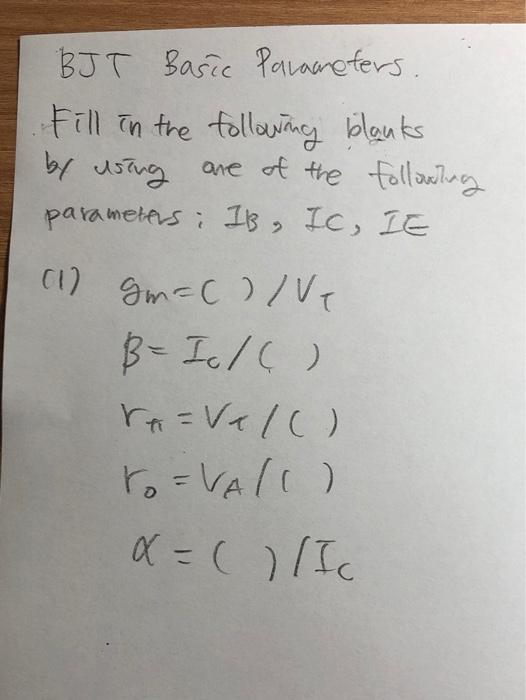 BJT Basic Parameters.
Fill in the following blanks
by using one of the following
parameters; IB, IC, IE
(1) gm = ( ) / VT
β = Ic / ( )
rπ = VT / ( )
ro = VA / ( )
α = ( ) / Ic